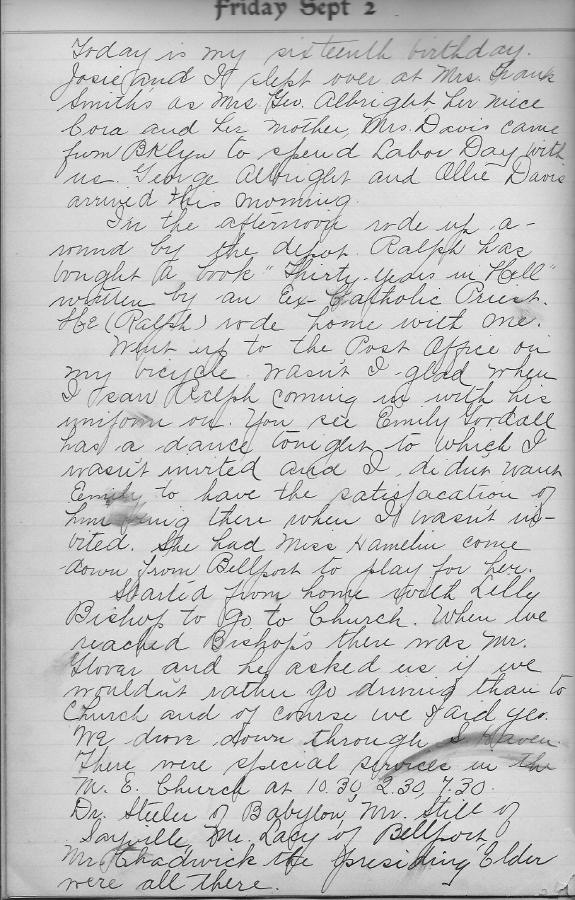 Friday Sept 2
Today is my sixteenth birthday.
Josie and I slept over at Mrs. Frank
Smith's as Mrs. Geo. Albright her niece
Cora and her mother, Mrs. Davis came
from Bklyn to spend Labor Day with
us. George Albright and Allie Davis
arrived this morning.
In the afternoon rode up a-
round by the depot. Ralph has
bought a book "Thirty-Years in Hell"
written by an Ex-Catholic Priest.
HE (Ralph) rode home with me.
Went up to the Post Office on
my bicycle. Wasn't I glad when
I saw Ralph coming in with his
uniform on. You see Emily Gordall
has a dance tonight to which I
wasn't invited and I didn't want
Emily to have the satisfacation of
him being there when I wasn't in-
vited. She had Miss Hamelin come
down from Bellport to play for her.
Started from home with Lelly
Bishop to go to Church. When we
reached Bishop's there was Mr.
Glover and he asked us if we
wouldn't rather go driving than to
Church and of course we said yes.
We drove down through S Haven.
There were special services in the
M. E. Church at 10.30, 2.30, 7.30.
Dr. Steeler of Babylon, Mr. Still of
Sayville, Mr. Lacy of Bellport,
Mr. Chadwick the presiding Elder
were all there.